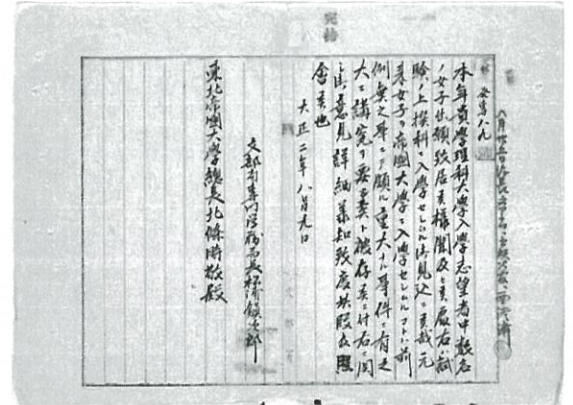 本年貴學理科大學入學志望者中数名
ノ女子出願致居候様聞及候處右ハ試
験ノ上撰科ニ入學セシムル御見込ニ候哉元
来女子ヲ帝國大學ニ入學セシムルコトハ前
例無之事ニテ頗ル重大ナル事件ニ有之
大ニ講究ヲ要シ候ト被存候ニ付右ニ関
シ御意見詳細承知致度此段及照
會候也
大正二年八月九日
文部省専門学務局長松浦鎮次郎
東北帝國大學總長北條時敬殿